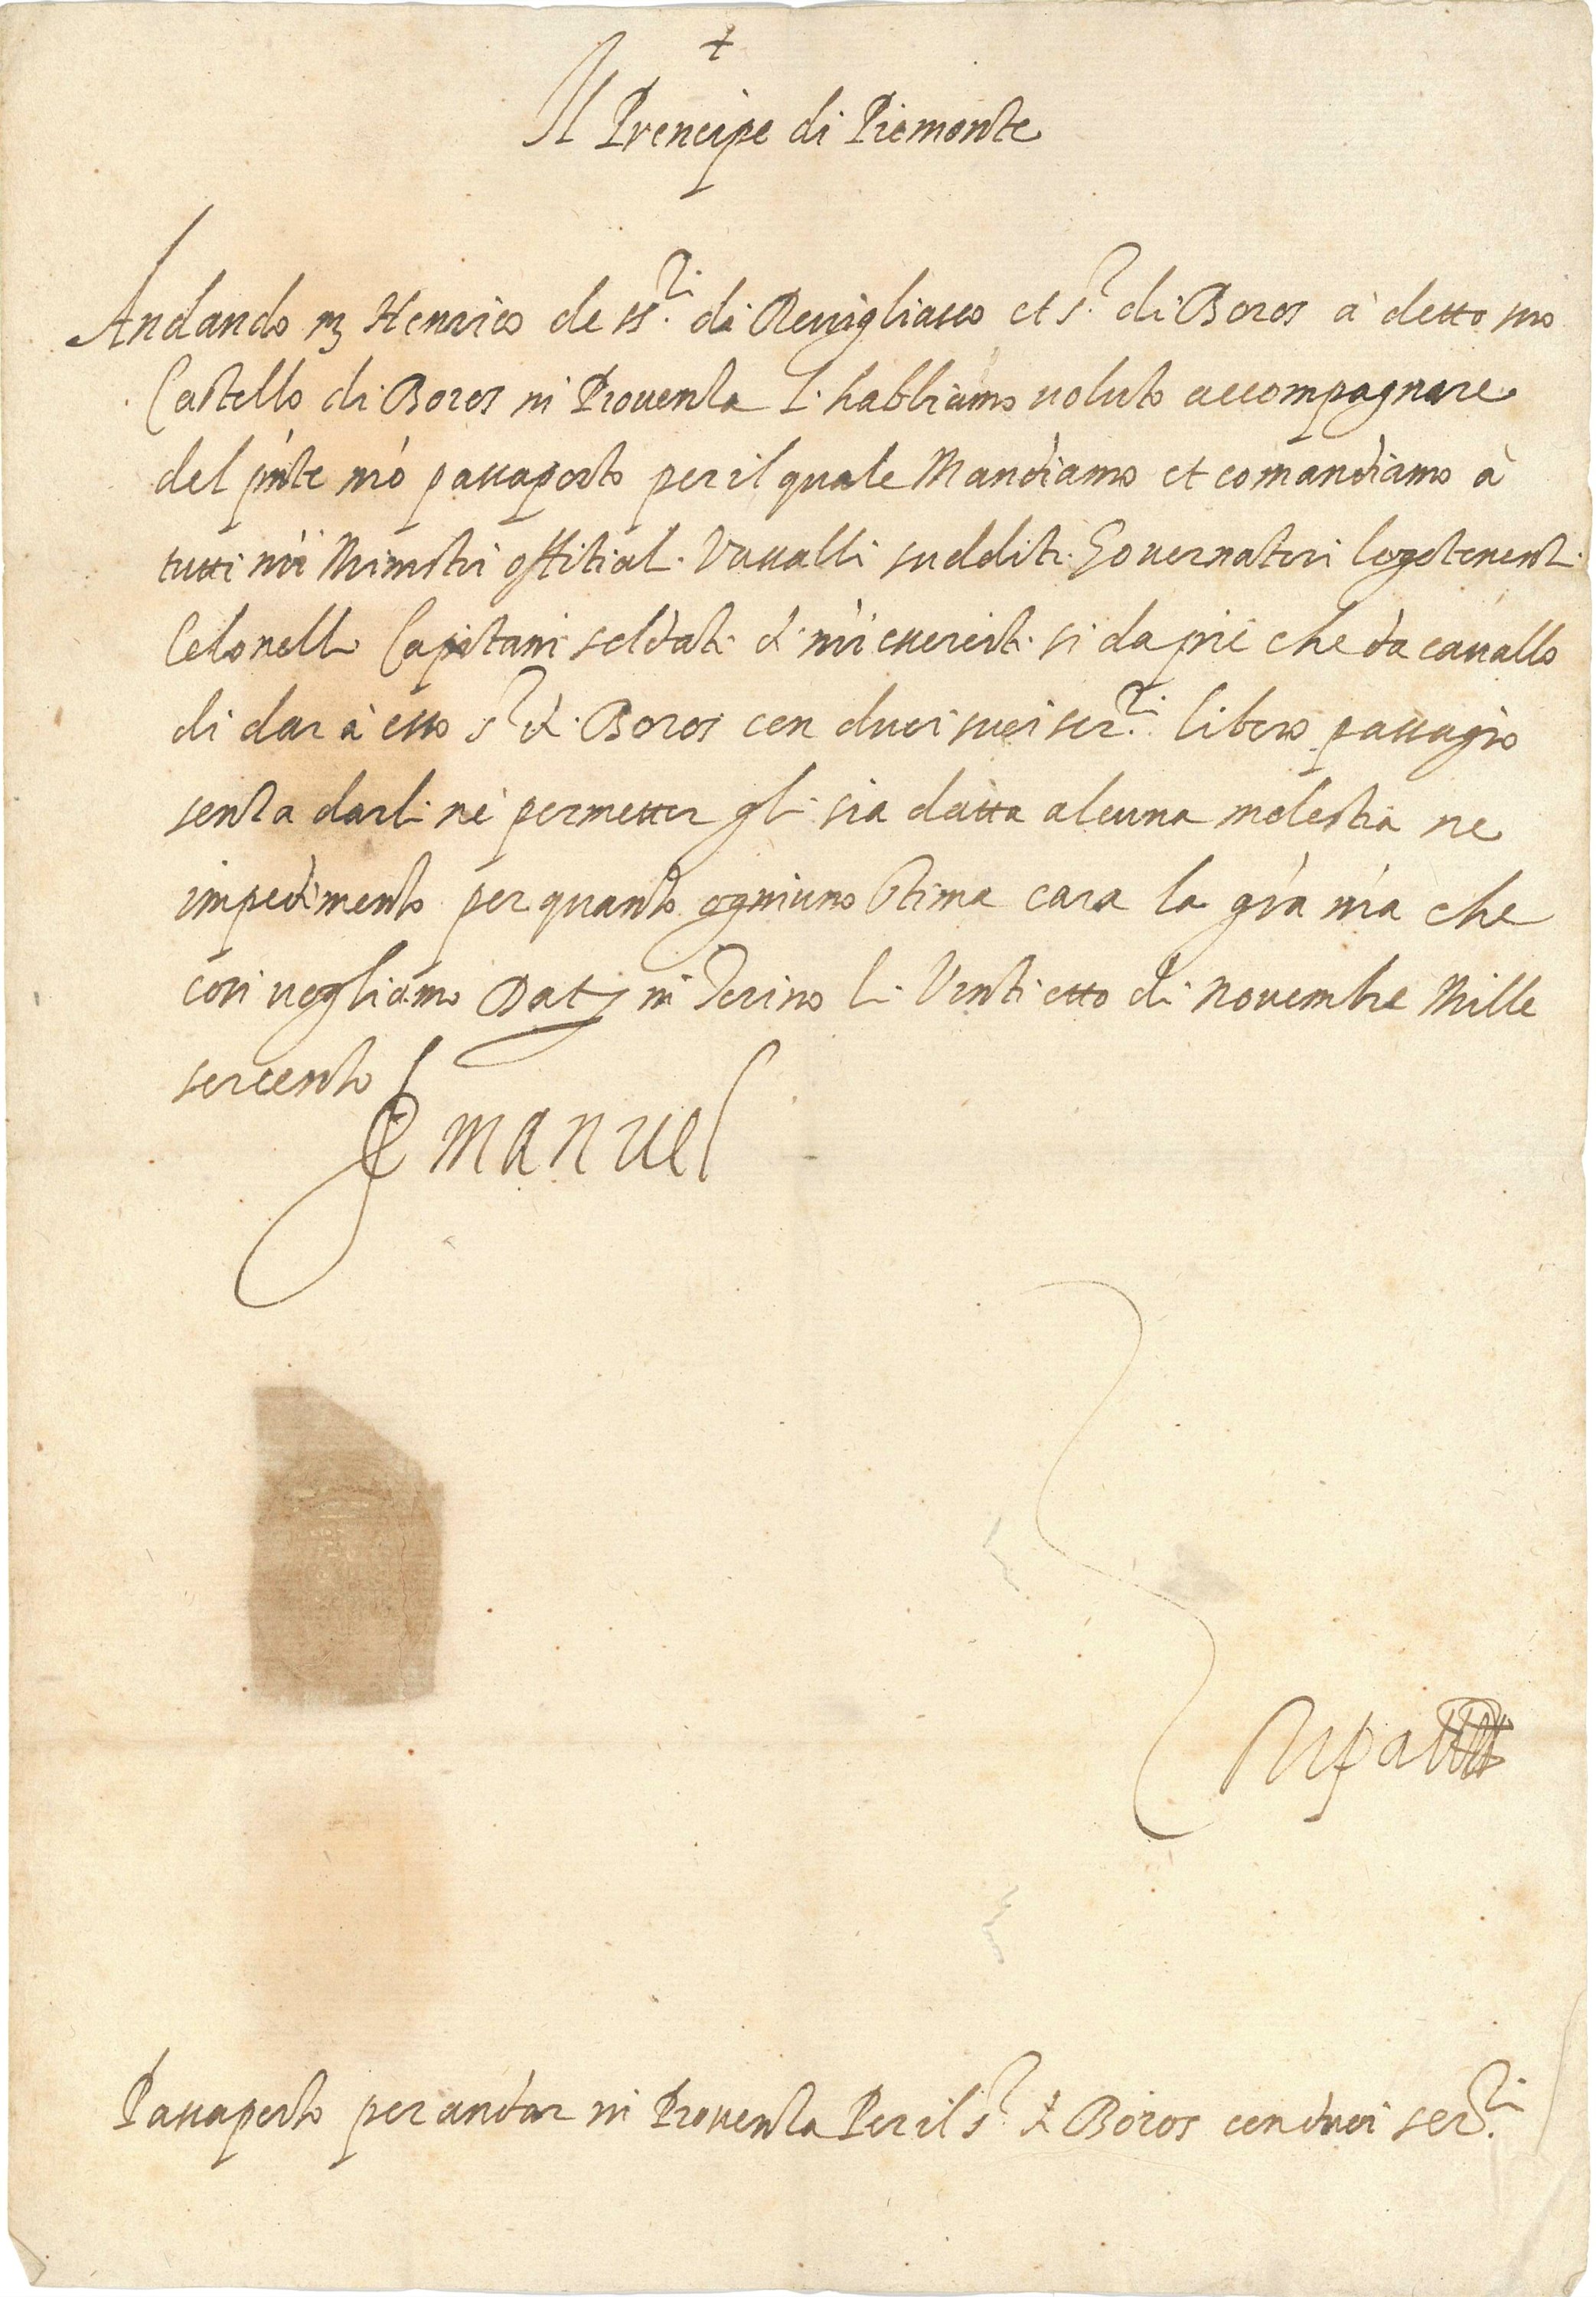 +
Il Prencipe di Piemonte
Andando m Henrico de ss.ri di Revigliasco et s.r di Boros à detto suo
Castello di Boros in Provenza l'habbiamo voluto accompagnare
del pñte nr̃o passaporto per il quale Mandiamo et comandiamo à
tutti nr̃i Ministri offitiali Vassalli sudditi Governatori logotenenti
Colonelli Capitani soldati di nr̃i esserciti si da piè che da cavallo
di dar à esso s.r di Boros con duoi suoi ser.ri libero passagio
senza darli nè permetter gli sia datta alcuna molestia ne
impedimento per quanto ogniuno stima cara la gr̃a nr̃a che
cosi vogliamo Dat in Torino li Vinti otto di novembre Mille
seicento
Emanuel
Ripa
Passaporto per andar in Provenza Per il s.r di Boros con duoi ser.ri